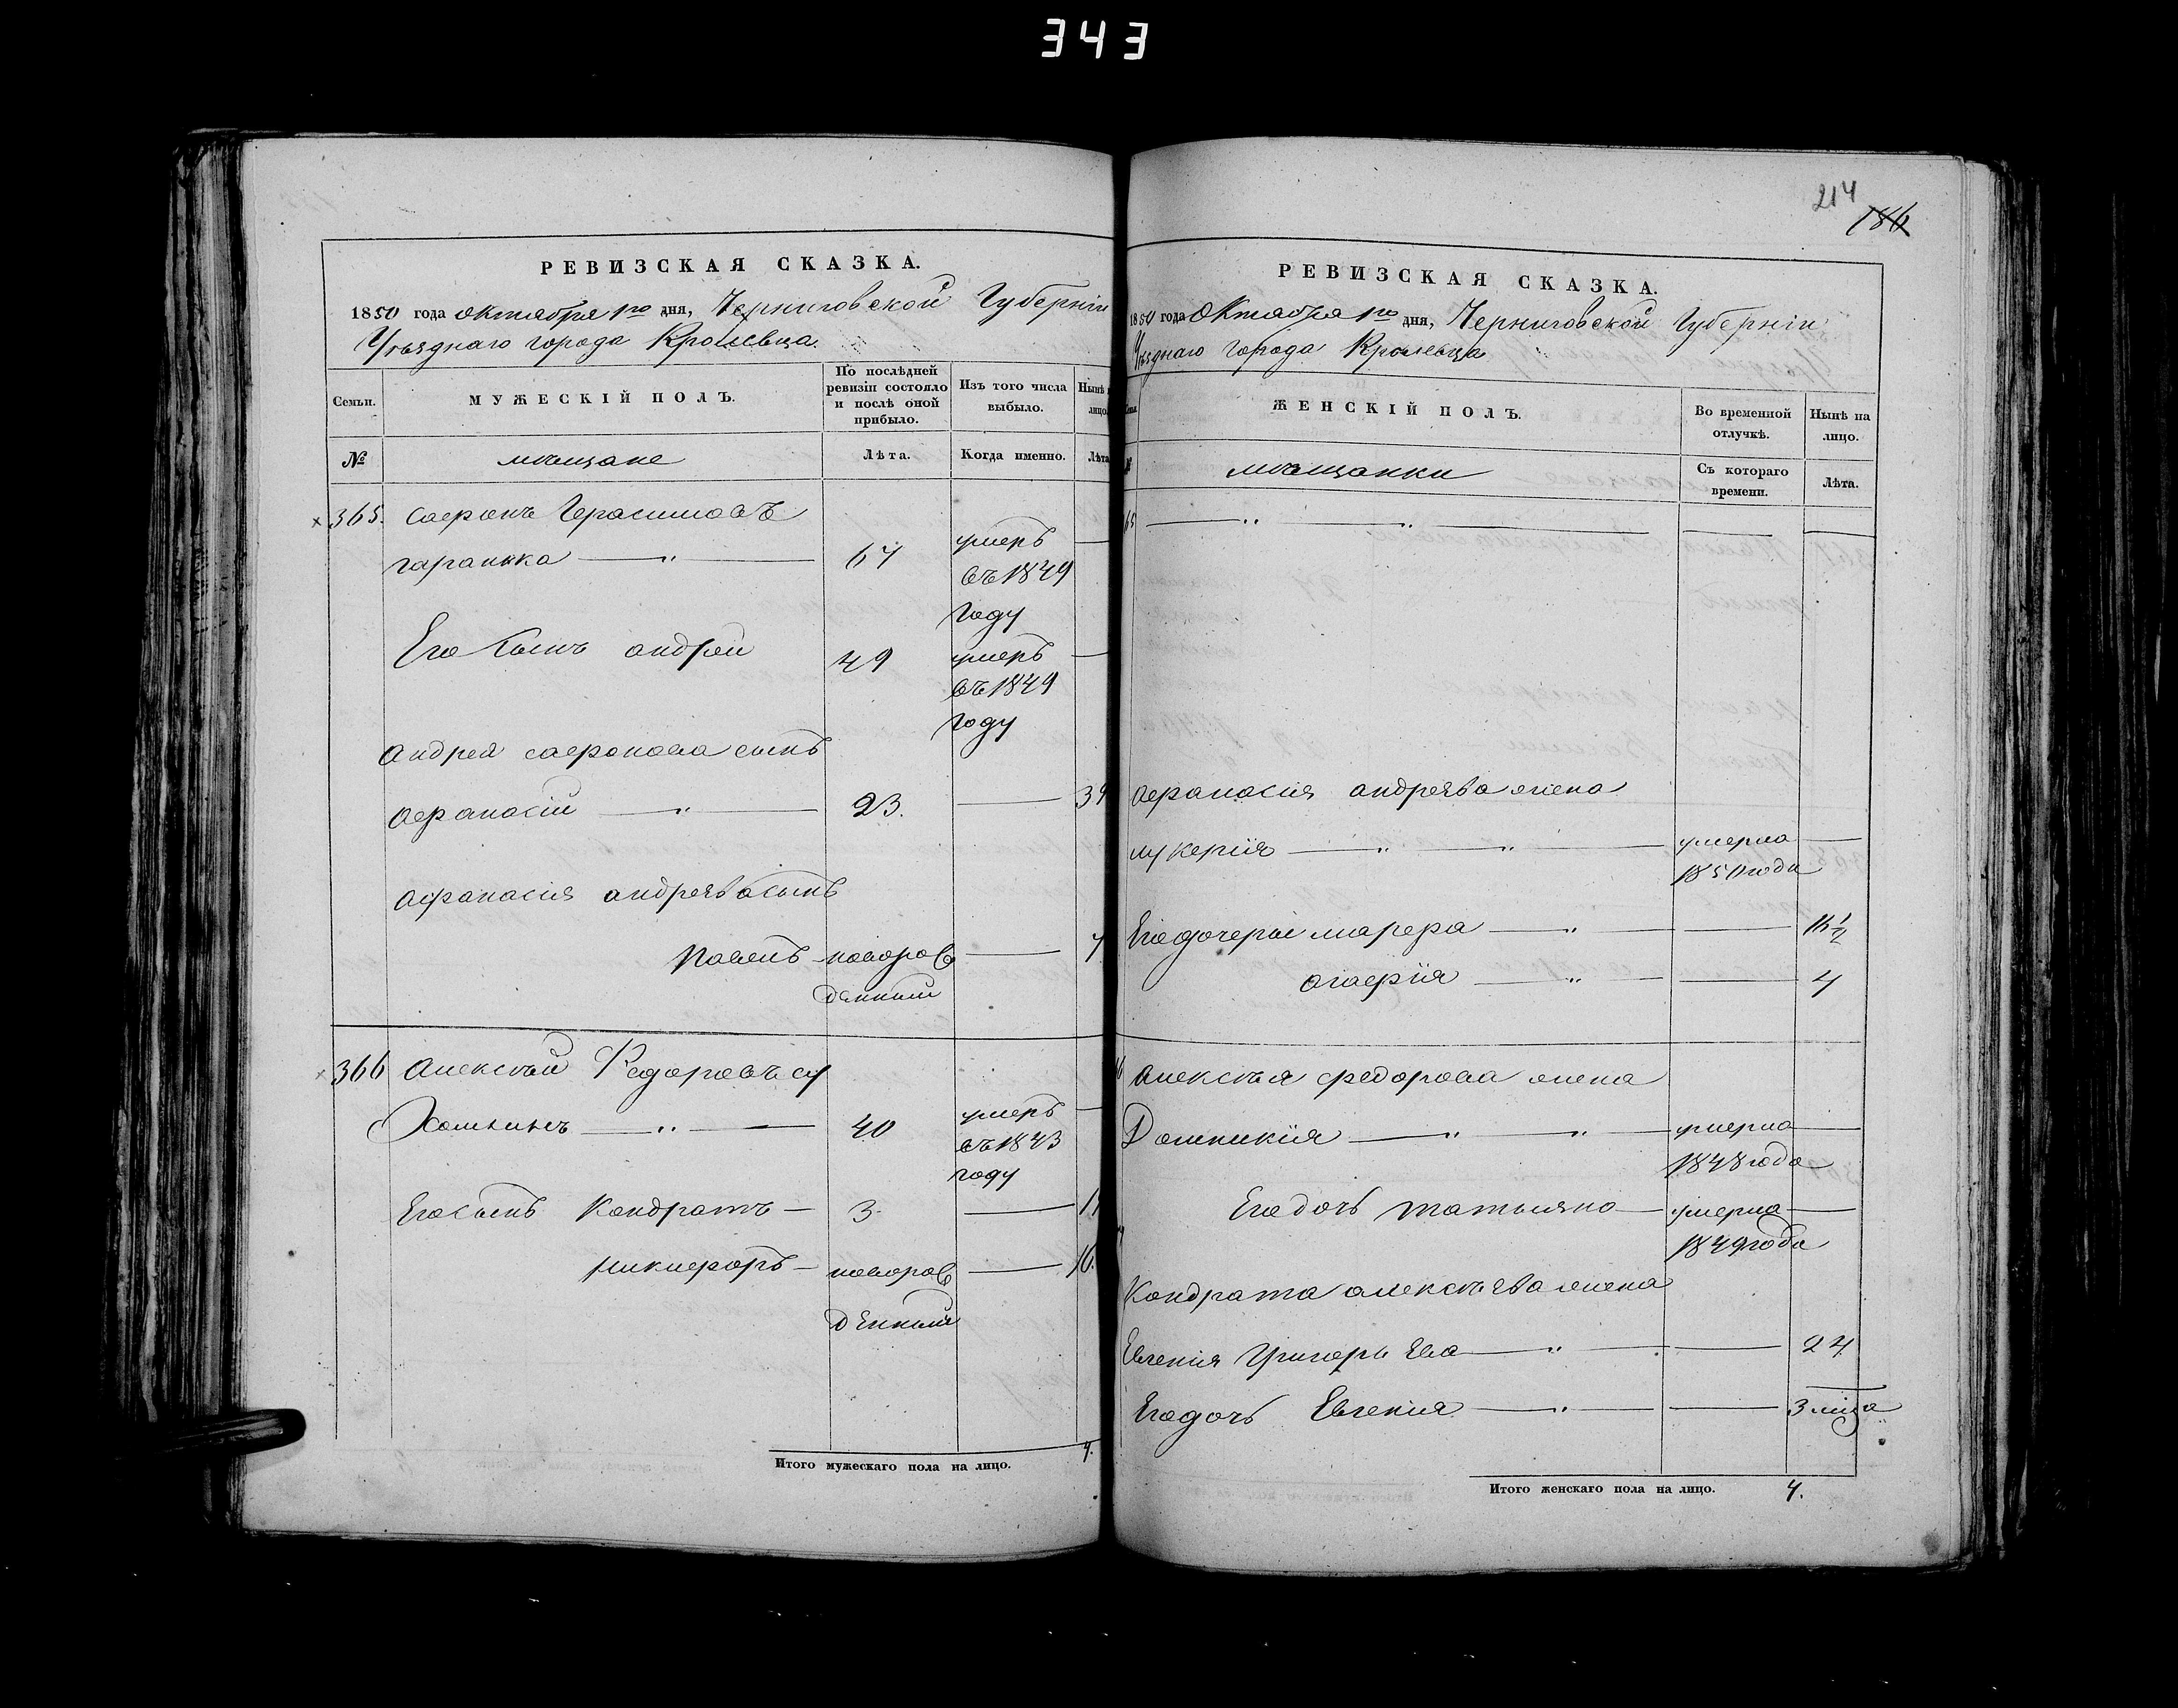 343
РЕВИЗСКАЯ СКАЗКА.
1850 года октября 1го дня, Черниговской Губерніи
Уѣзднаго города Кролевца
Семьи. МУЖЕСКІЙ ПОЛЪ. По послѣдней ревизіи состояло и послѣ оной прибыло. Изъ того числа выбыло. Нынѣ лицо.
№ мѣщане Лѣта. Когда именно. Лѣта
365. Сафонъ Герасимовъ
гаранька — " — 67 умеръ —
въ 1849
году
Его сынъ андрей 49 умеръ —
въ 1849
году
Андрея сафонова сынъ
афанасій — " — 23. — 39
Афанасія андреева сынъ
павелъ новорож — 7
денный
366 Алексѣй Федоровъ су
Хомлинъ — " — 40 умеръ —
въ 1843
году
Его сынъ Кондратъ — 3. —
никифоръ — новорож — 16.
денный
Итого мужескаго пола на лицо. 4.
214
186
РЕВИЗСКАЯ СКАЗКА.
1850 года Октября 1го дня, Черниговской Губерніи
Уѣзднаго города Кролевца
ЖЕНСКІЙ ПОЛЪ. Во временной отлучкѣ. Нынѣ на лицо.
№ мѣщанки Съ котораго времени. Лѣта.
65 — " — " — — —
Афанасія андреева жена
лукерія — " — " — умерла —
1850 года
Его дочери марфа — " — —
агафія — " — — 4
66 Алексѣя федорова жена
Домникія — " — " — умерла —
1848 года
Его дочь татьяна — умерла —
1849 года
Кондрата алексѣева жена
Евгенія Григорьева — " — — 24
Его дочь Евгенія — " — — 3 мѣсяца
Итого женскаго пола на лицо. 4.